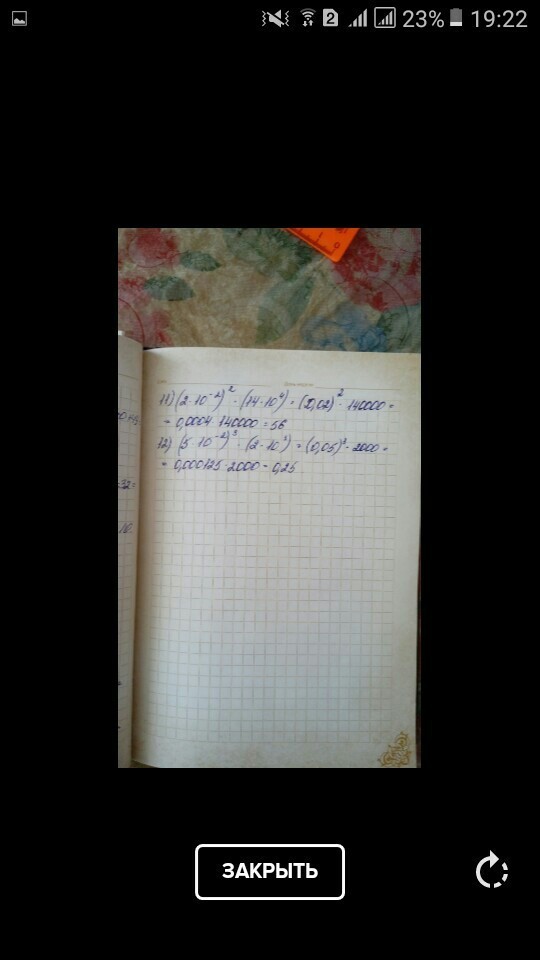 23% 19:22
11) (2·10⁻²)² · (14·10⁴) = (0,02)² · 140000 =
= 0,0004 · 140000 = 56
12) (5·10⁻²)³ · (2·10³) = (0,05)³ · 2000 =
= 0,000125 · 2000 = 0,25
-32=
10.
ЗАКРЫТЬ